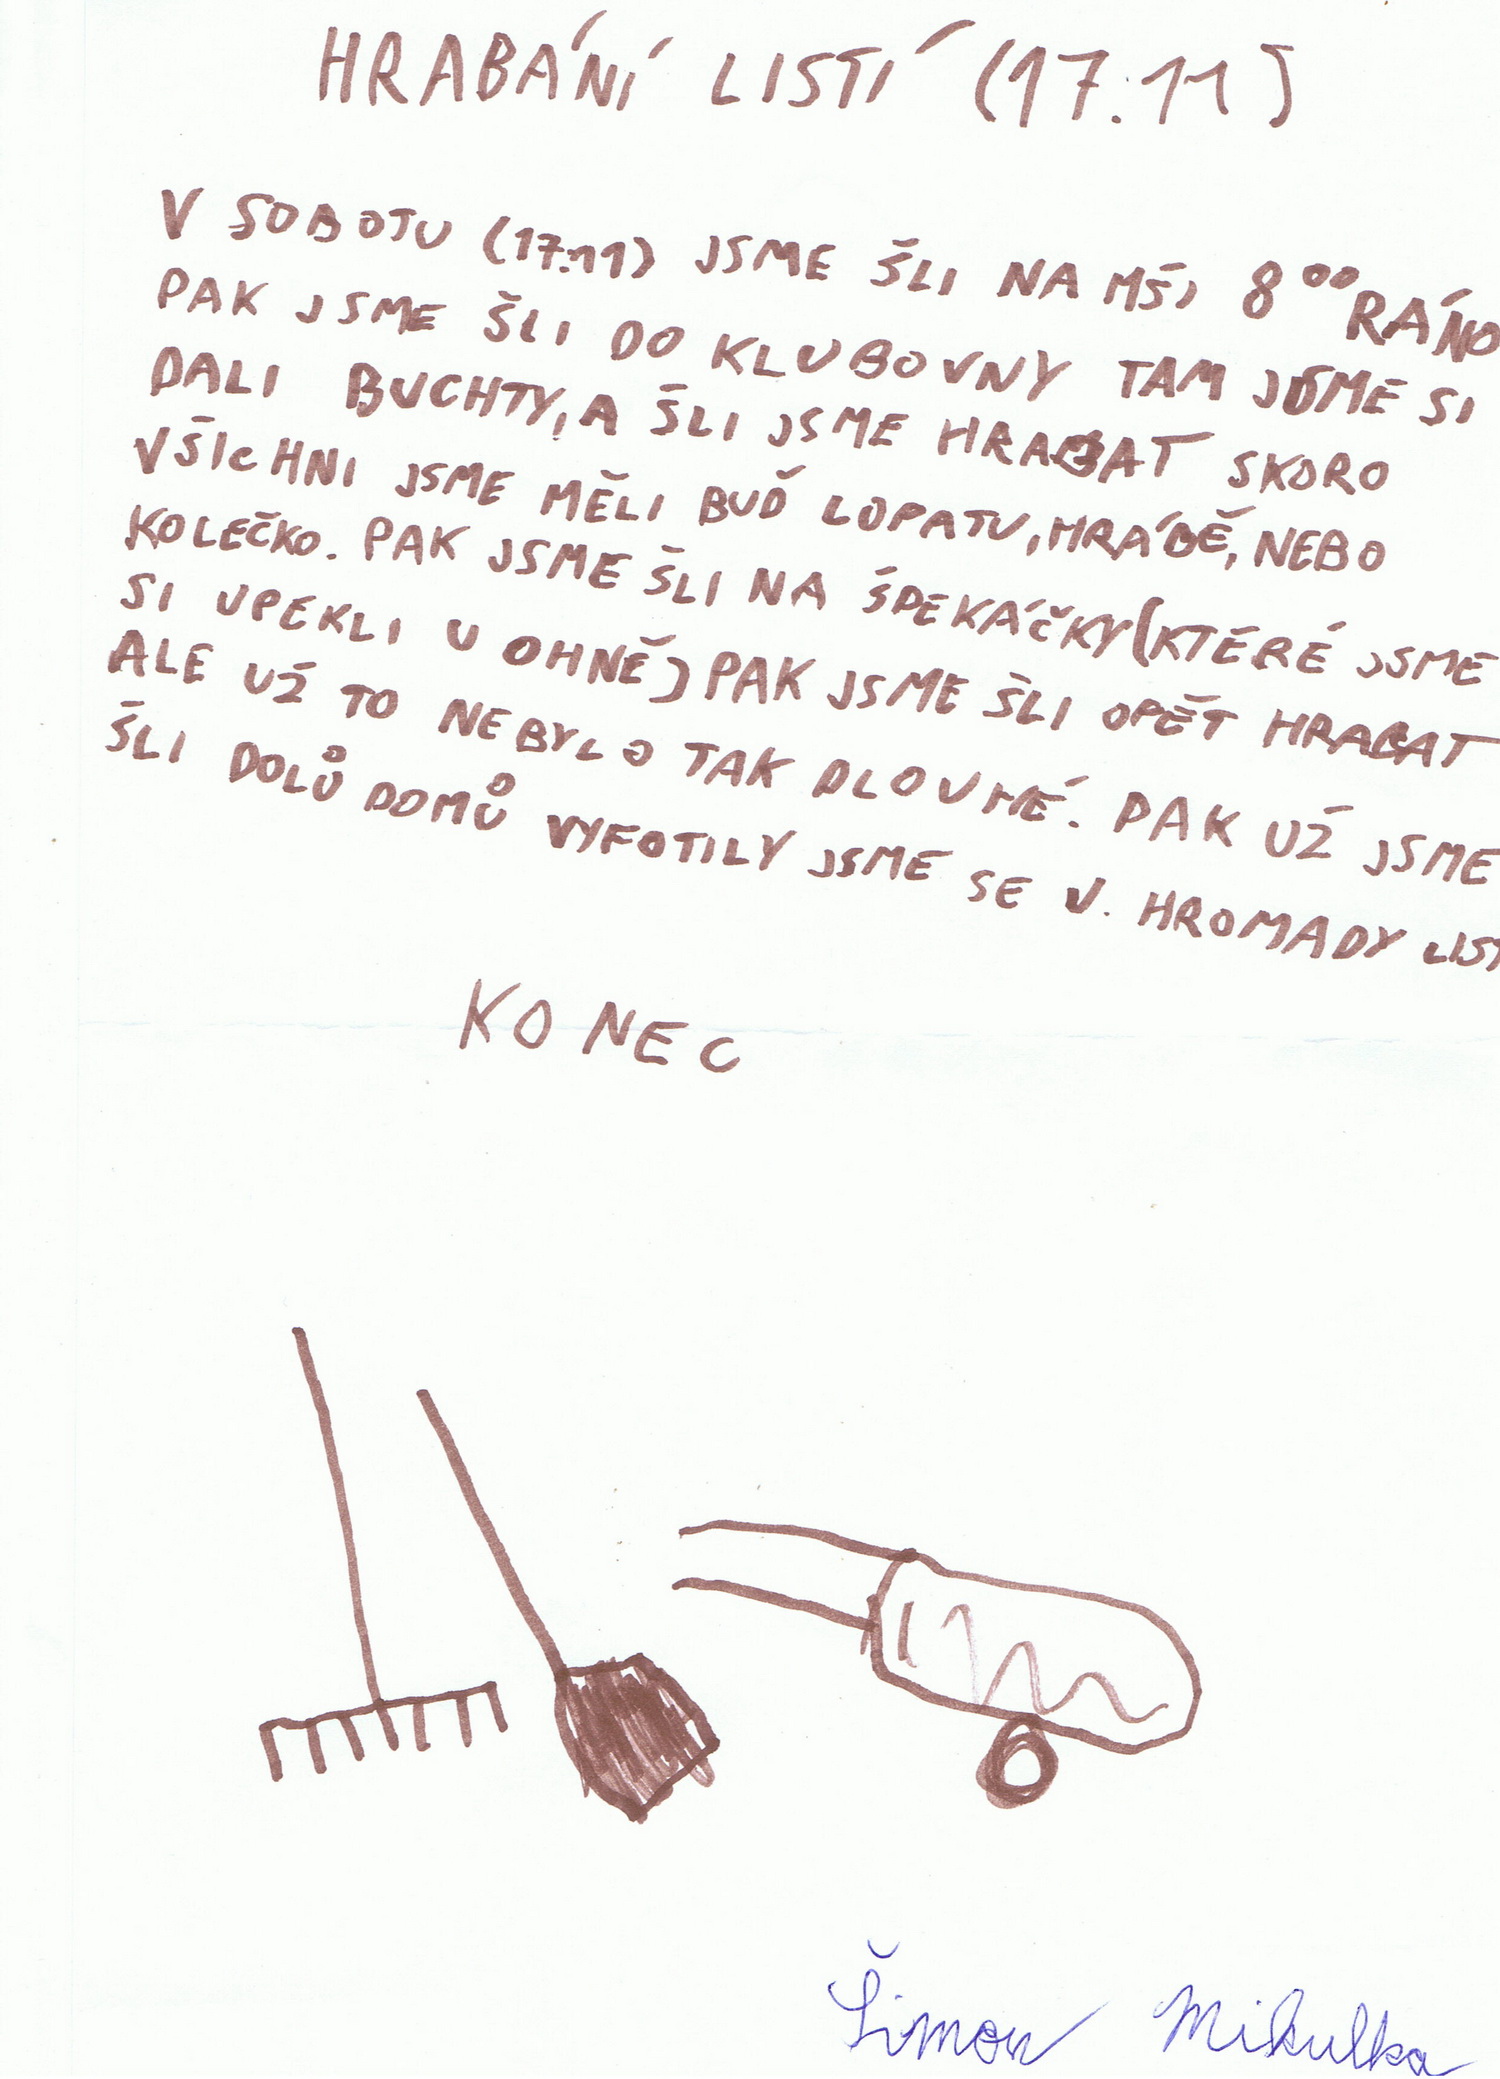 HRABÁNÍ LISTÍ (17.11)
V SOBOTU (17.11) JSME ŠLI NA MŠI 8⁰⁰ RÁNO
PAK JSME ŠLI DO KLUBOVNY TAM JSME SI
DALI BUCHTY, A ŠLI JSME HRABAT SKORO
VŠICHNI JSME MĚLI BUĎ LOPATU, HRÁBĚ, NEBO
KOLEČKO. PAK JSME ŠLI NA ŠPEKÁČKY (KTERÉ JSME
SI UPEKLI U OHNĚ) PAK JSME ŠLI OPĚT HRABAT
ALE UŽ TO NEBYLO TAK DLOUHÉ. PAK UŽ JSME
ŠLI DOLŮ DOMŮ VYFOTILY JSME SE V. HROMADY
KONEC
Šimon Mikulka